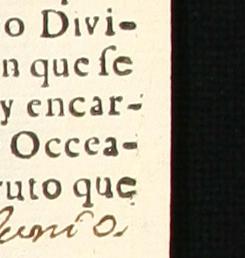 o Divi-
n que ſe
y encar-
Occea-
ruto que